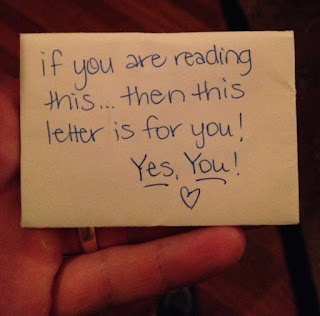 if you are reading
this... then this
letter is for you!
Yes, You!
♡